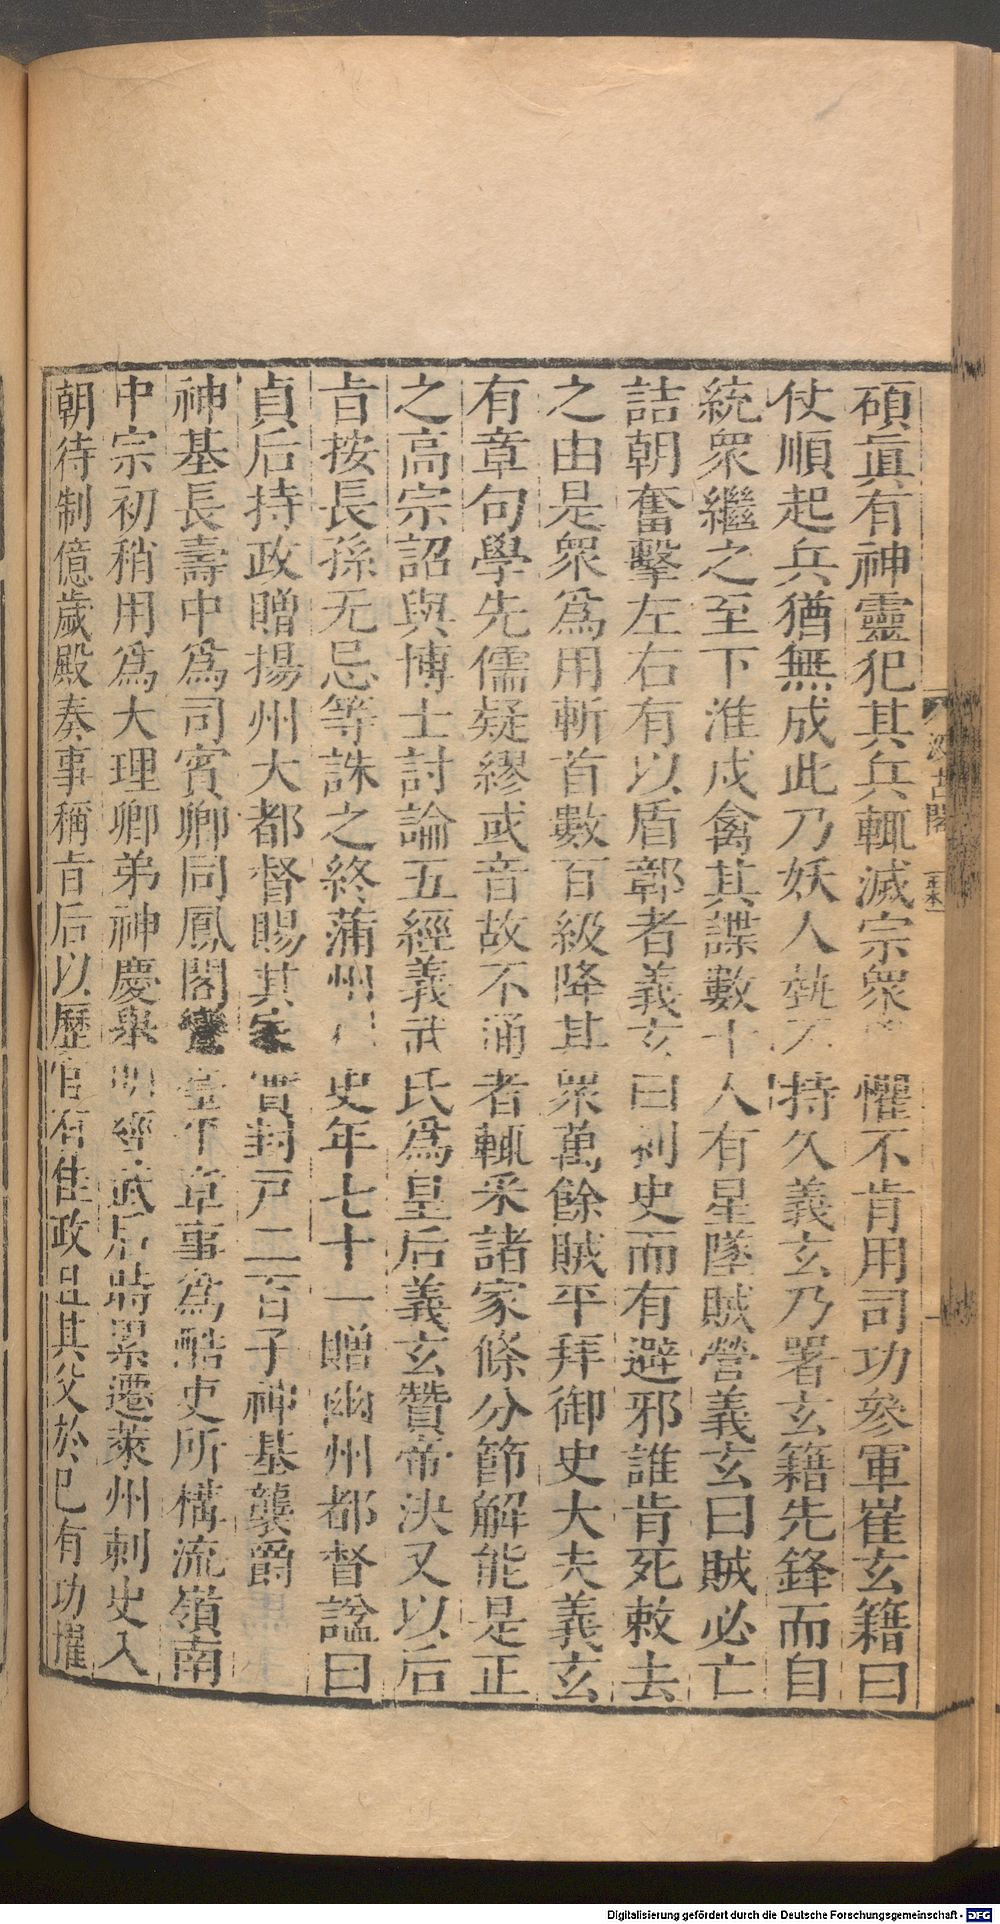 碩眞有神靈犯其兵輒滅宗衆懼不肯用司功參軍崔玄籍曰
仗順起兵猶無成此乃妖人埶不持久義玄乃署玄籍先鋒而自
統衆繼之至下淮戍禽其諜數十人有星墜賊營義玄曰賊必亡
詰朝奮擊左右有以盾鄣者義玄曰刺史而有避邪誰肯死敕去
之由是衆爲用斬首數百級降其衆萬餘賊平拜御史大夫義玄
有章句學先儒疑繆或音故不通者輒采諸家條分節解能是正
之高宗詔與博士討論五經義武氏爲皇后義玄贊帝決又以后
㫖按長孫无忌等誅之終蒲州史年七十一贈幽州都督諡曰
貞后持政贈揚州大都督賜其家實封戸二百子神基襲爵
神基長壽中爲司賓卿同鳳閣鸞臺平章事爲酷吏所構流嶺南
中宗初稍用爲大理卿弟神慶舉明經武后時累遷萊州刺史入
朝待制億歲殿奏事稱㫖后以歷官有佳政且其父於已有功擢
汲古閣
毛氏
Digitalisierung gefördert durch die Deutsche Forschungsgemeinschaft - DFG